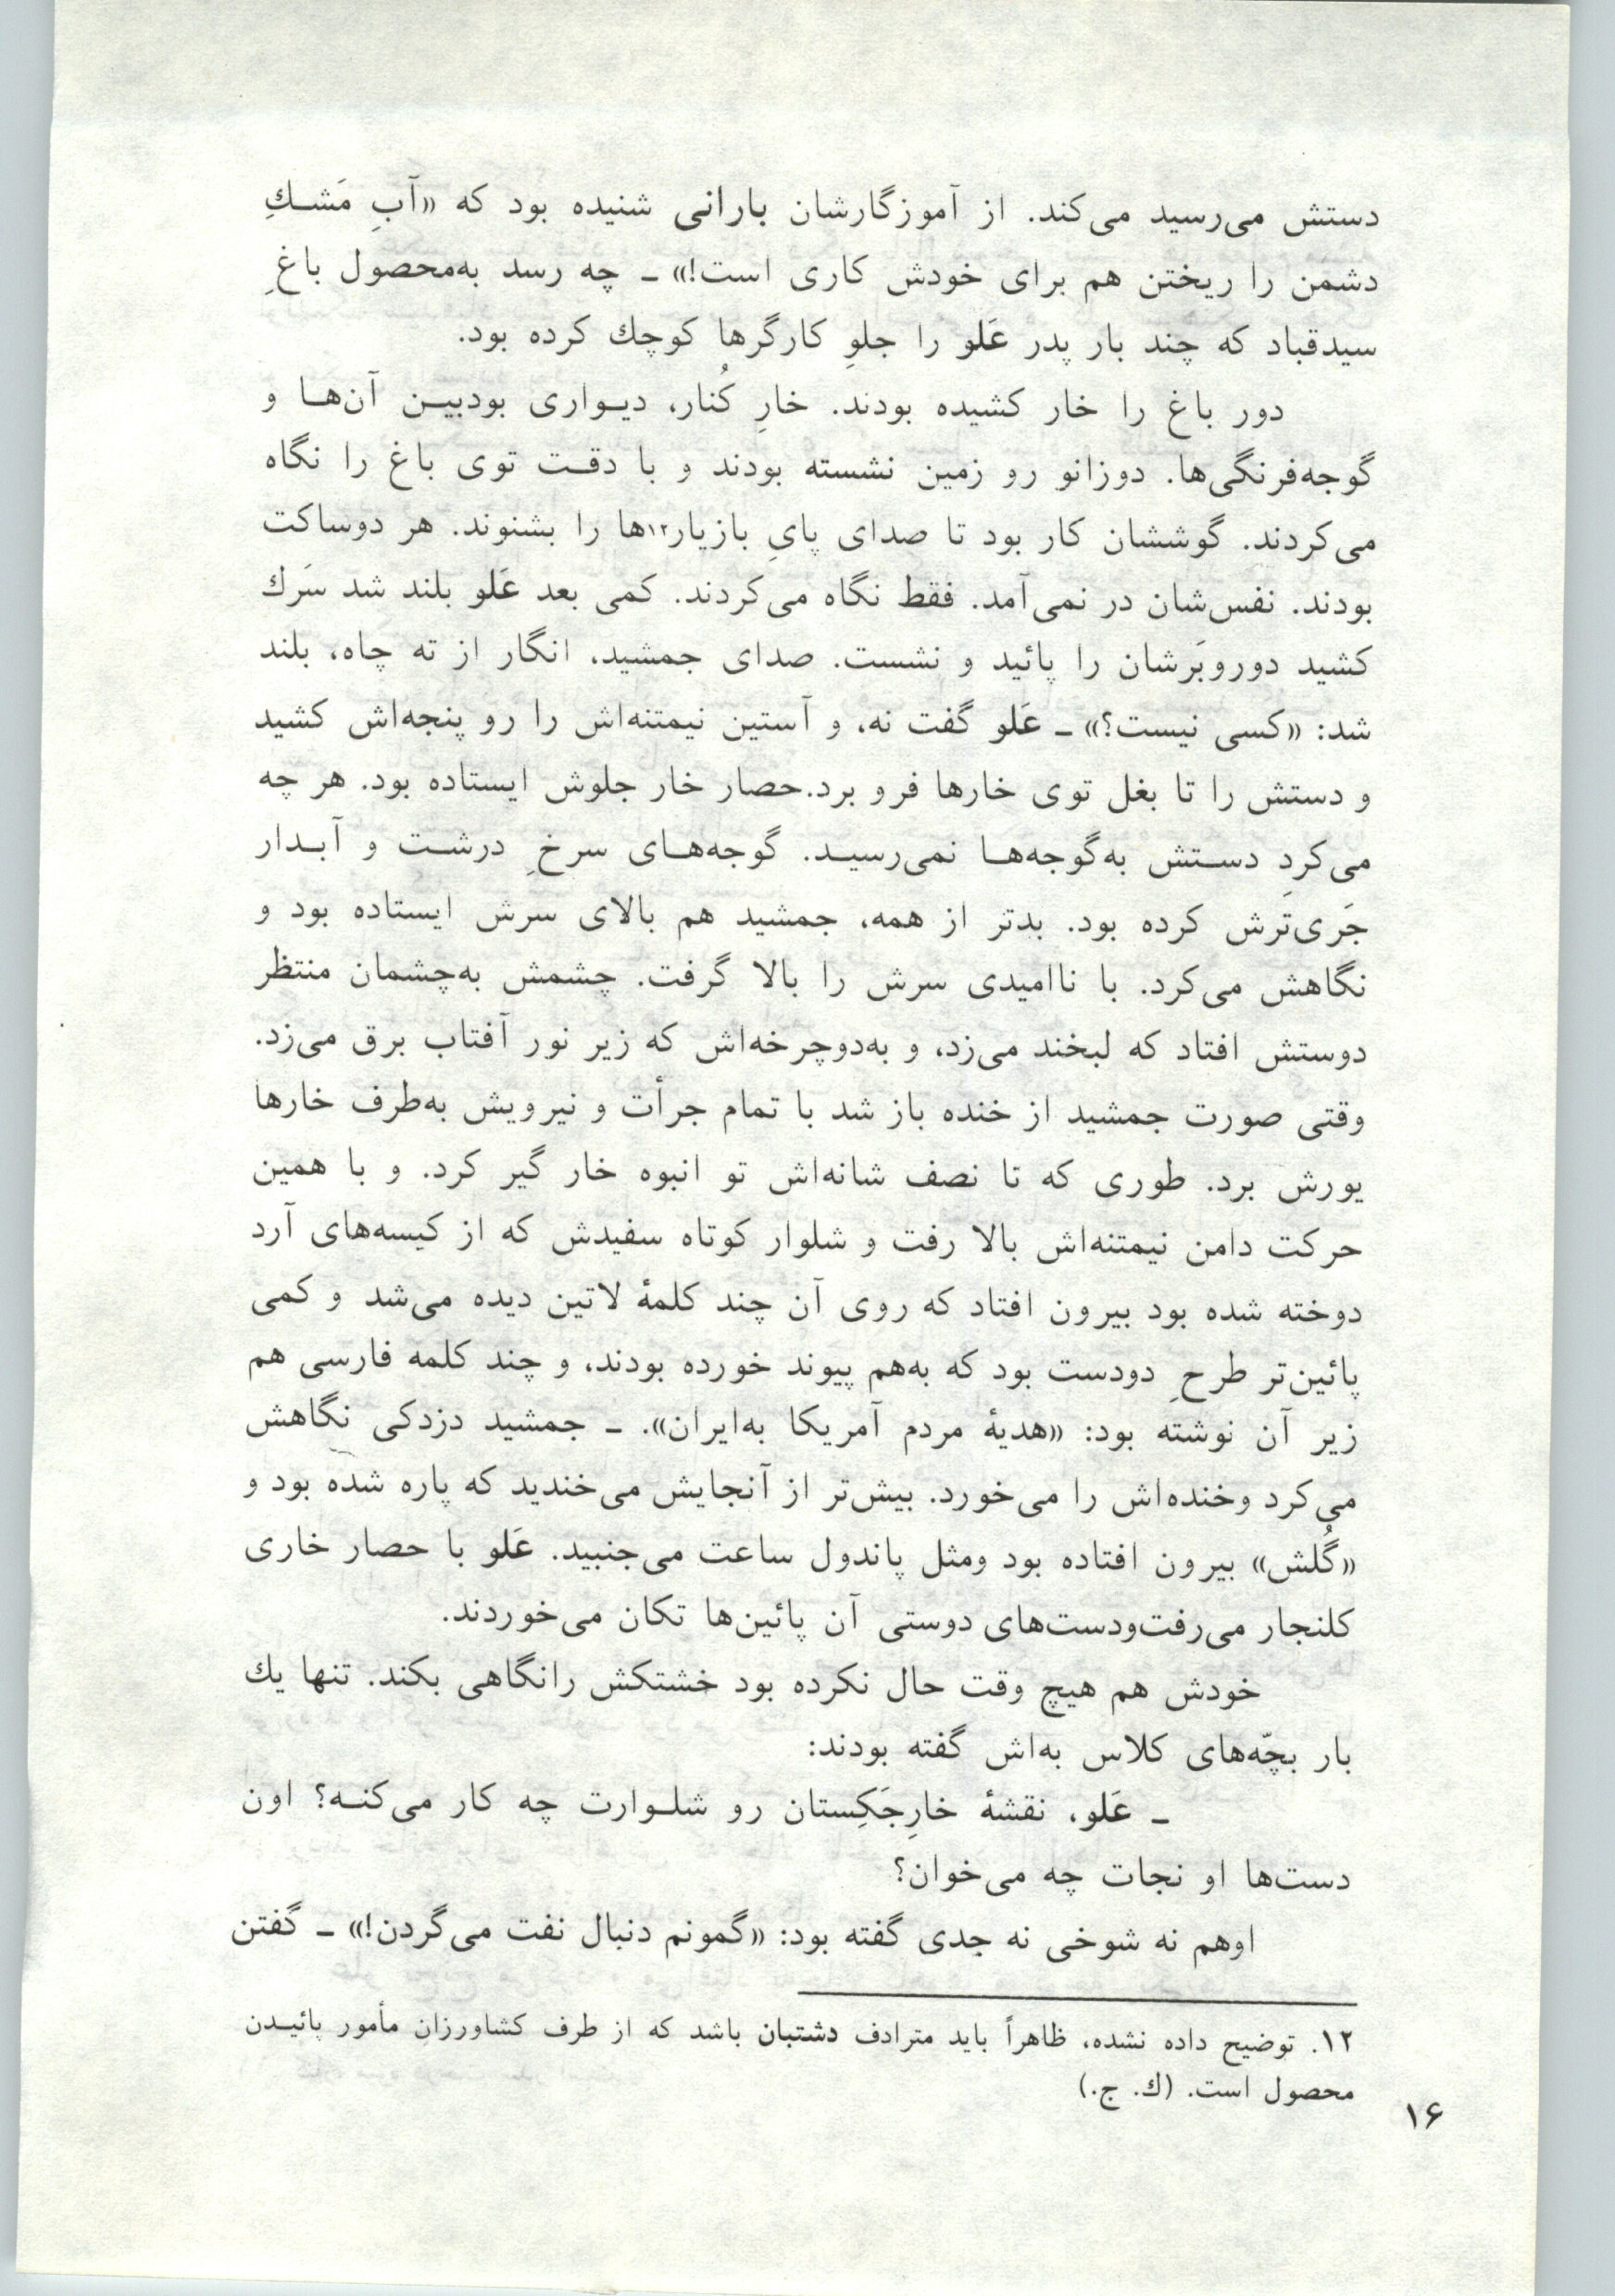 دستش می‌رسید می‌کند. از آموزگارشان بارانی شنیده بود که «آبِ مَشـكِ
دشمن را ریختن هم برای خودش کاری است!» ـ چه رسد به‌محصول باغِ
سیدقباد که چند بار پدر عَلو را جلوِ کارگرها کوچك کرده بود.
دور باغ را خار کشیده بودند. خارِ کُنار، دیـواری بودبیـن آن‌هـا و
گوجه‌فرنگی‌ها. دوزانو رو زمین نشسته بودند و با دقـت توی باغ را نگاه
می‌کردند. گوششان کار بود تا صدای پایِ بازیار۱۲ها را بشنوند. هر دوساکت
بودند. نفس‌شان در نمی‌آمد. فقط نگاه می‌کردند. کمی بعد عَلو بلند شد سَرك
کشید دوروبَرشان را پائید و نشست. صدای جمشید، انگار از ته چاه، بلند
شد: «کسی نیست؟» ـ عَلو گفت نه، و آستین نیمتنه‌اش را رو پنجه‌اش کشید
و دستش را تا بغل توی خارها فرو برد.حصار خار جلوش ایستاده بود. هر چه
می‌کرد دسـتش به‌گوجه‌هـا نمی‌رسیـد. گوجه‌هـای سرخِ درشـت و آبـدار
جَری‌تَرش کرده بود. بدتر از همه، جمشید هم بالای سرش ایستاده بود و
نگاهش می‌کرد. با ناامیدی سرش را بالا گرفت. چشمش به‌چشمان منتظر
دوستش افتاد که لبخند می‌زد، و به‌دوچرخه‌اش که زیر نور آفتاب برق می‌زد.
وقتی صورت جمشید از خنده باز شد با تمام جرأت و نیرویش به‌طرف خارها
یورش برد. طوری که تا نصف شانه‌اش تو انبوه خار گیر کرد. و با همین
حرکت دامن نیمتنه‌اش بالا رفت و شلوار کوتاه سفیدش که از کیسه‌های آرد
دوخته شده بود بیرون افتاد که روی آن چند کلمهٔ لاتین دیده می‌شد و کمی
پائین‌تر طرحِ دودست بود که به‌هم پیوند خورده بودند، و چند کلمه فارسی هم
زیر آن نوشته بود: «هدیهٔ مردم آمریکا به‌ایران». ـ جمشید دزدکی نگاهش
می‌کرد وخنده‌اش را می‌خورد. بیش‌تر از آنجایش می‌خندید که پاره شده بود و
«گُلش» بیرون افتاده بود ومثل پاندول ساعت می‌جنبید. عَلو با حصار خاری
کلنجار می‌رفت‌ودست‌های دوستی آن پائین‌ها تکان می‌خوردند.
خودش هم هیچ وقت حال نکرده بود خشتکش رانگاهی بکند. تنها یك
بار بچّه‌های کلاس به‌اش گفته بودند:
ـ عَلو، نقشهٔ خارِجَکِستان رو شلـوارت چه کار می‌کنـه؟ اون
دست‌ها او نجات چه می‌خوان؟
اوهم نه شوخی نه جدی گفته بود: «گمونم دنبال نفت می‌گردن!» ـ گفتن
۱۲. توضیح داده نشده، ظاهراً باید مترادف دشتبان باشد که از طرف کشاورزان مأمور پائیـدن
محصول است. (ك. ج.)
۱۶